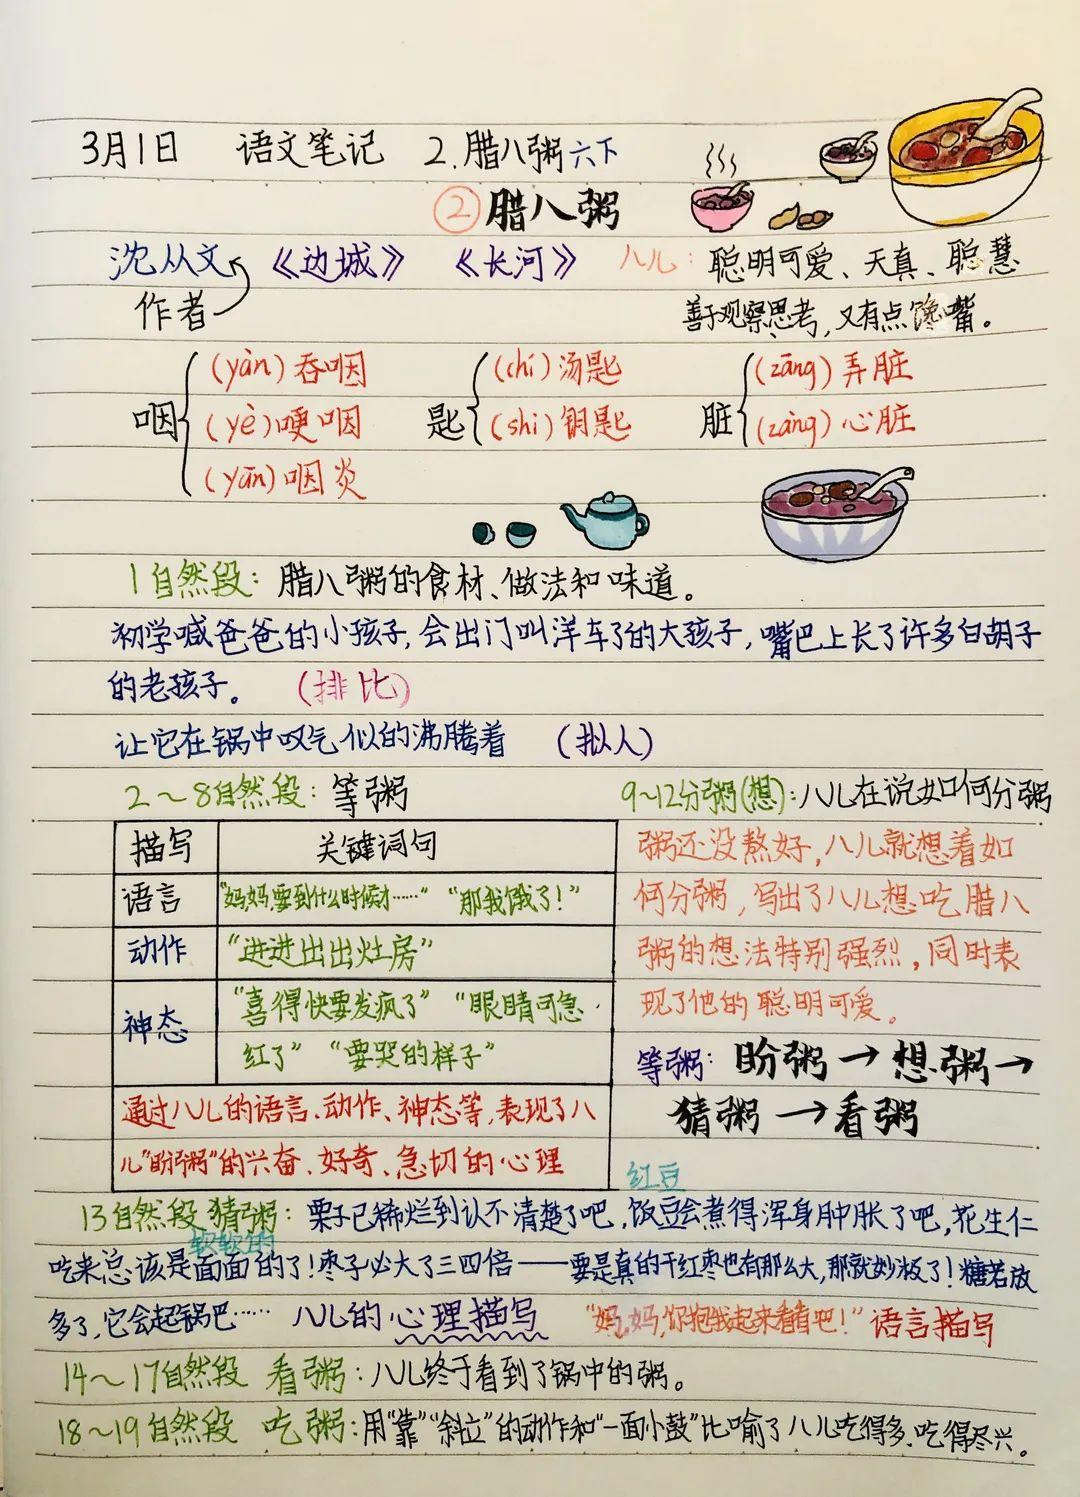 3月1日 语文笔记 2.腊八粥六下
② 腊八粥
沈从文 《边城》 《长河》 八儿：聪明可爱、天真、聪慧
作者 善于观察思考，又有点馋嘴。
咽 (yàn)吞咽 匙 (chí)汤匙 脏 (zāng)弄脏
(yè)哽咽 (shi)钥匙 (zàng)心脏
(yān)咽炎
1自然段：腊八粥的食材、做法和味道。
初学喊爸爸的小孩子，会出门叫洋车了的大孩子，嘴巴上长了许多白胡子
的老孩子。 (排比)
让它在锅中叹气似的沸腾着 (拟人)
2～8自然段：等粥
描写 关键词句
语言 “妈妈，要到什么时候才……” “那我饿了！”
动作 “进进出出灶房”
神态 “喜得快要发疯了” “眼睛可急
红了” “要哭的样子”
通过八儿的语言、动作、神态等，表现了八
儿“盼粥”的兴奋、好奇、急切的心理
9~12分粥(想)：八儿在说如何分粥
粥还没熬好，八儿就想着如
何分粥，写出了八儿想吃腊八
粥的想法特别强烈，同时表
现了他的聪明可爱。
等粥：盼粥→想粥→
猜粥→看粥
红豆
13自然段 猜粥：栗子已稀烂到认不清楚了吧，饭豆会煮得浑身肿胀了吧，花生仁
软软的
吃来总该是面面的了！枣子必大了三四倍——要是真的干红枣也有那么大，那就妙极了！糖若放
多了，它会起锅吧…… 八儿的心理描写 “妈，妈，你抱我起来看看吧！”语言描写
14～17自然段 看粥：八儿终于看到了锅中的粥。
18～19自然段 吃粥：用“靠”“斜立”的动作和“一面小鼓”比喻了八儿吃得多、吃得尽兴。